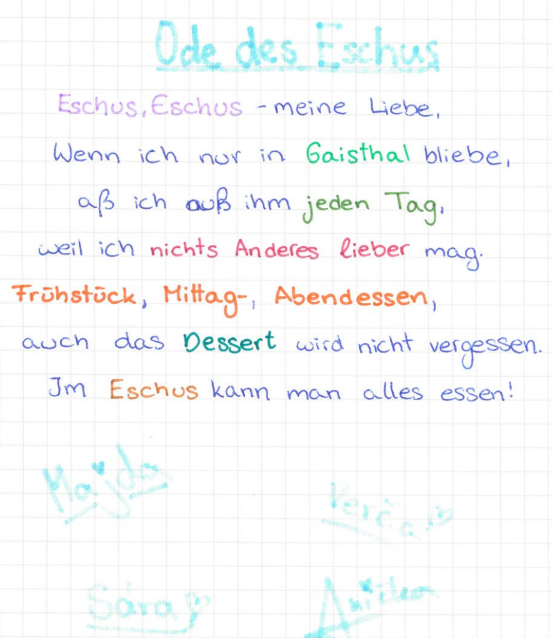 Ode des Eschus
Eschus, Eschus - meine Liebe,
Wenn ich nur in Gaisthal bliebe,
aß ich auß ihm jeden Tag,
weil ich nichts Anderes lieber mag.
Frühstück, Mittag-, Abendessen,
auch das Dessert wird nicht vergessen.
Im Eschus kann man alles essen!
Majda
Verča
Sára